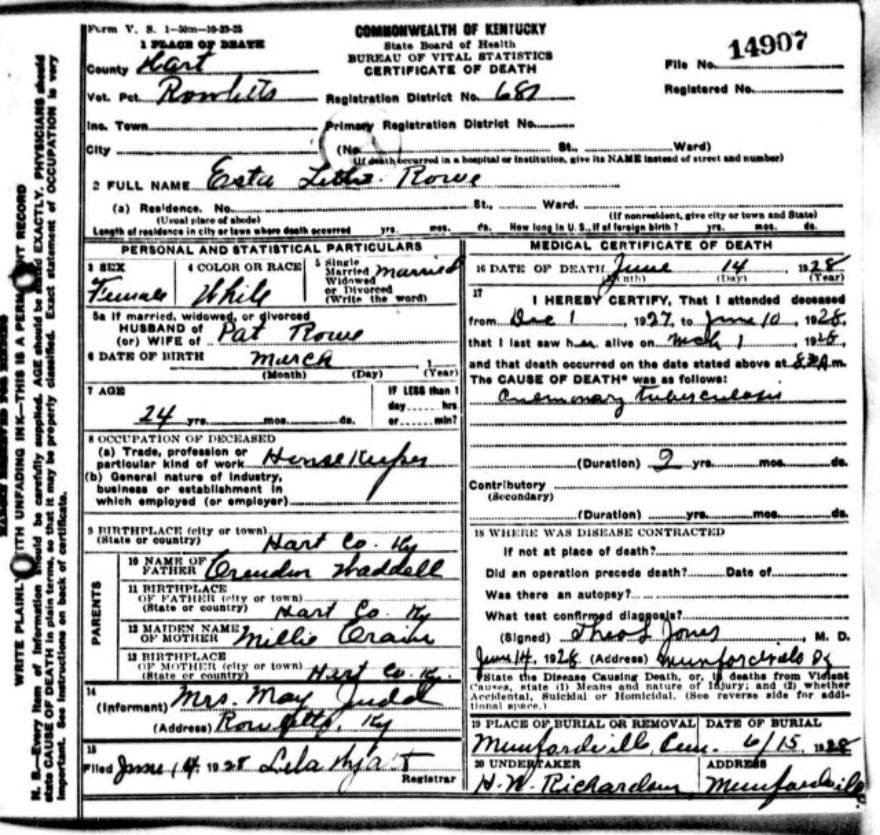 Form V. S. 1—50m—10-23-25
COMMONWEALTH OF KENTUCKY
State Board of Health
BUREAU OF VITAL STATISTICS
CERTIFICATE OF DEATH
File No. 14907
Registered No.
1 PLACE OF DEATH
County Hart
Vot. Pct. Rowletts Registration District No. 681
Inc. Town Primary Registration District No.
City (No. St., Ward)
(If death occurred in a hospital or institution, give its NAME instead of street and number)
2 FULL NAME Rowe
(a) Residence. No. St., Ward.
(Usual place of abode) (If nonresident, give city or town and State)
Length of residence in city or town where death occurred yrs. mos. ds. How long in U. S., if of foreign birth? yrs. mos. ds.
PERSONAL AND STATISTICAL PARTICULARS
3 SEX Female
4 COLOR OR RACE White
5 Single Married Widowed or Divorced (Write the word) Married
5a If married, widowed, or divorced
HUSBAND of
(or) WIFE of Pat Rowe
6 DATE OF BIRTH March 1
(Month) (Day) (Year)
7 AGE
24 yrs. mos. ds.
IF LESS than 1
day hrs
or min?
8 OCCUPATION OF DECEASED
(a) Trade, profession or
particular kind of work House Keeper
(b) General nature of industry,
business or establishment in
which employed (or employer)
9 BIRTHPLACE (city or town)
(State or country) Hart Co. Ky
PARENTS
10 NAME OF
FATHER Waddell
11 BIRTHPLACE
OF FATHER (city or town)
(State or country) Hart Co. Ky
12 MAIDEN NAME
OF MOTHER Millie Crain
13 BIRTHPLACE
OF MOTHER (city or town)
(State or country) Hart Co. Ky.
14
(Informant) Mrs. May Judd
(Address) Rowletts, Ky
15
Filed June 14 1928 Lela Hyatt
Registrar
MEDICAL CERTIFICATE OF DEATH
16 DATE OF DEATH June 14 1928
(Month) (Day) (Year)
17
I HEREBY CERTIFY, That I attended deceased
from Dec 1, 1927, to June 10, 1928,
that I last saw her alive on Mch 1, 1928,
and that death occurred on the date stated above at m.
The CAUSE OF DEATH* was as follows:
Pulmonary tuberculosis
(Duration) 2 yrs. mos. ds.
Contributory
(Secondary)
(Duration) yrs. mos. ds.
18 WHERE WAS DISEASE CONTRACTED
If not at place of death?
Did an operation precede death? Date of
Was there an autopsy?
What test confirmed diagnosis?
(Signed) Theo L Jones, M. D.
June 14, 1928 (Address) Munfordville Ky
*State the Disease Causing Death, or, in deaths from Violent
Causes, state (1) Means and nature of Injury; and (2) whether
Accidental, Suicidal or Homicidal. (See reverse side for addi-
tional space.)
19 PLACE OF BURIAL OR REMOVAL Munfordville, Cem.
DATE OF BURIAL 6/15 1928
20 UNDERTAKER H. W. Richardson
ADDRESS Munfordville
WRITE PLAINLY WITH UNFADING INK—THIS IS A PERMANENT RECORD
N. B.—Every item of information should be carefully supplied. AGE should be stated EXACTLY. PHYSICIANS should
state CAUSE OF DEATH in plain terms, so that it may be properly classified. Exact statement of OCCUPATION is very
important. See instructions on back of certificate.